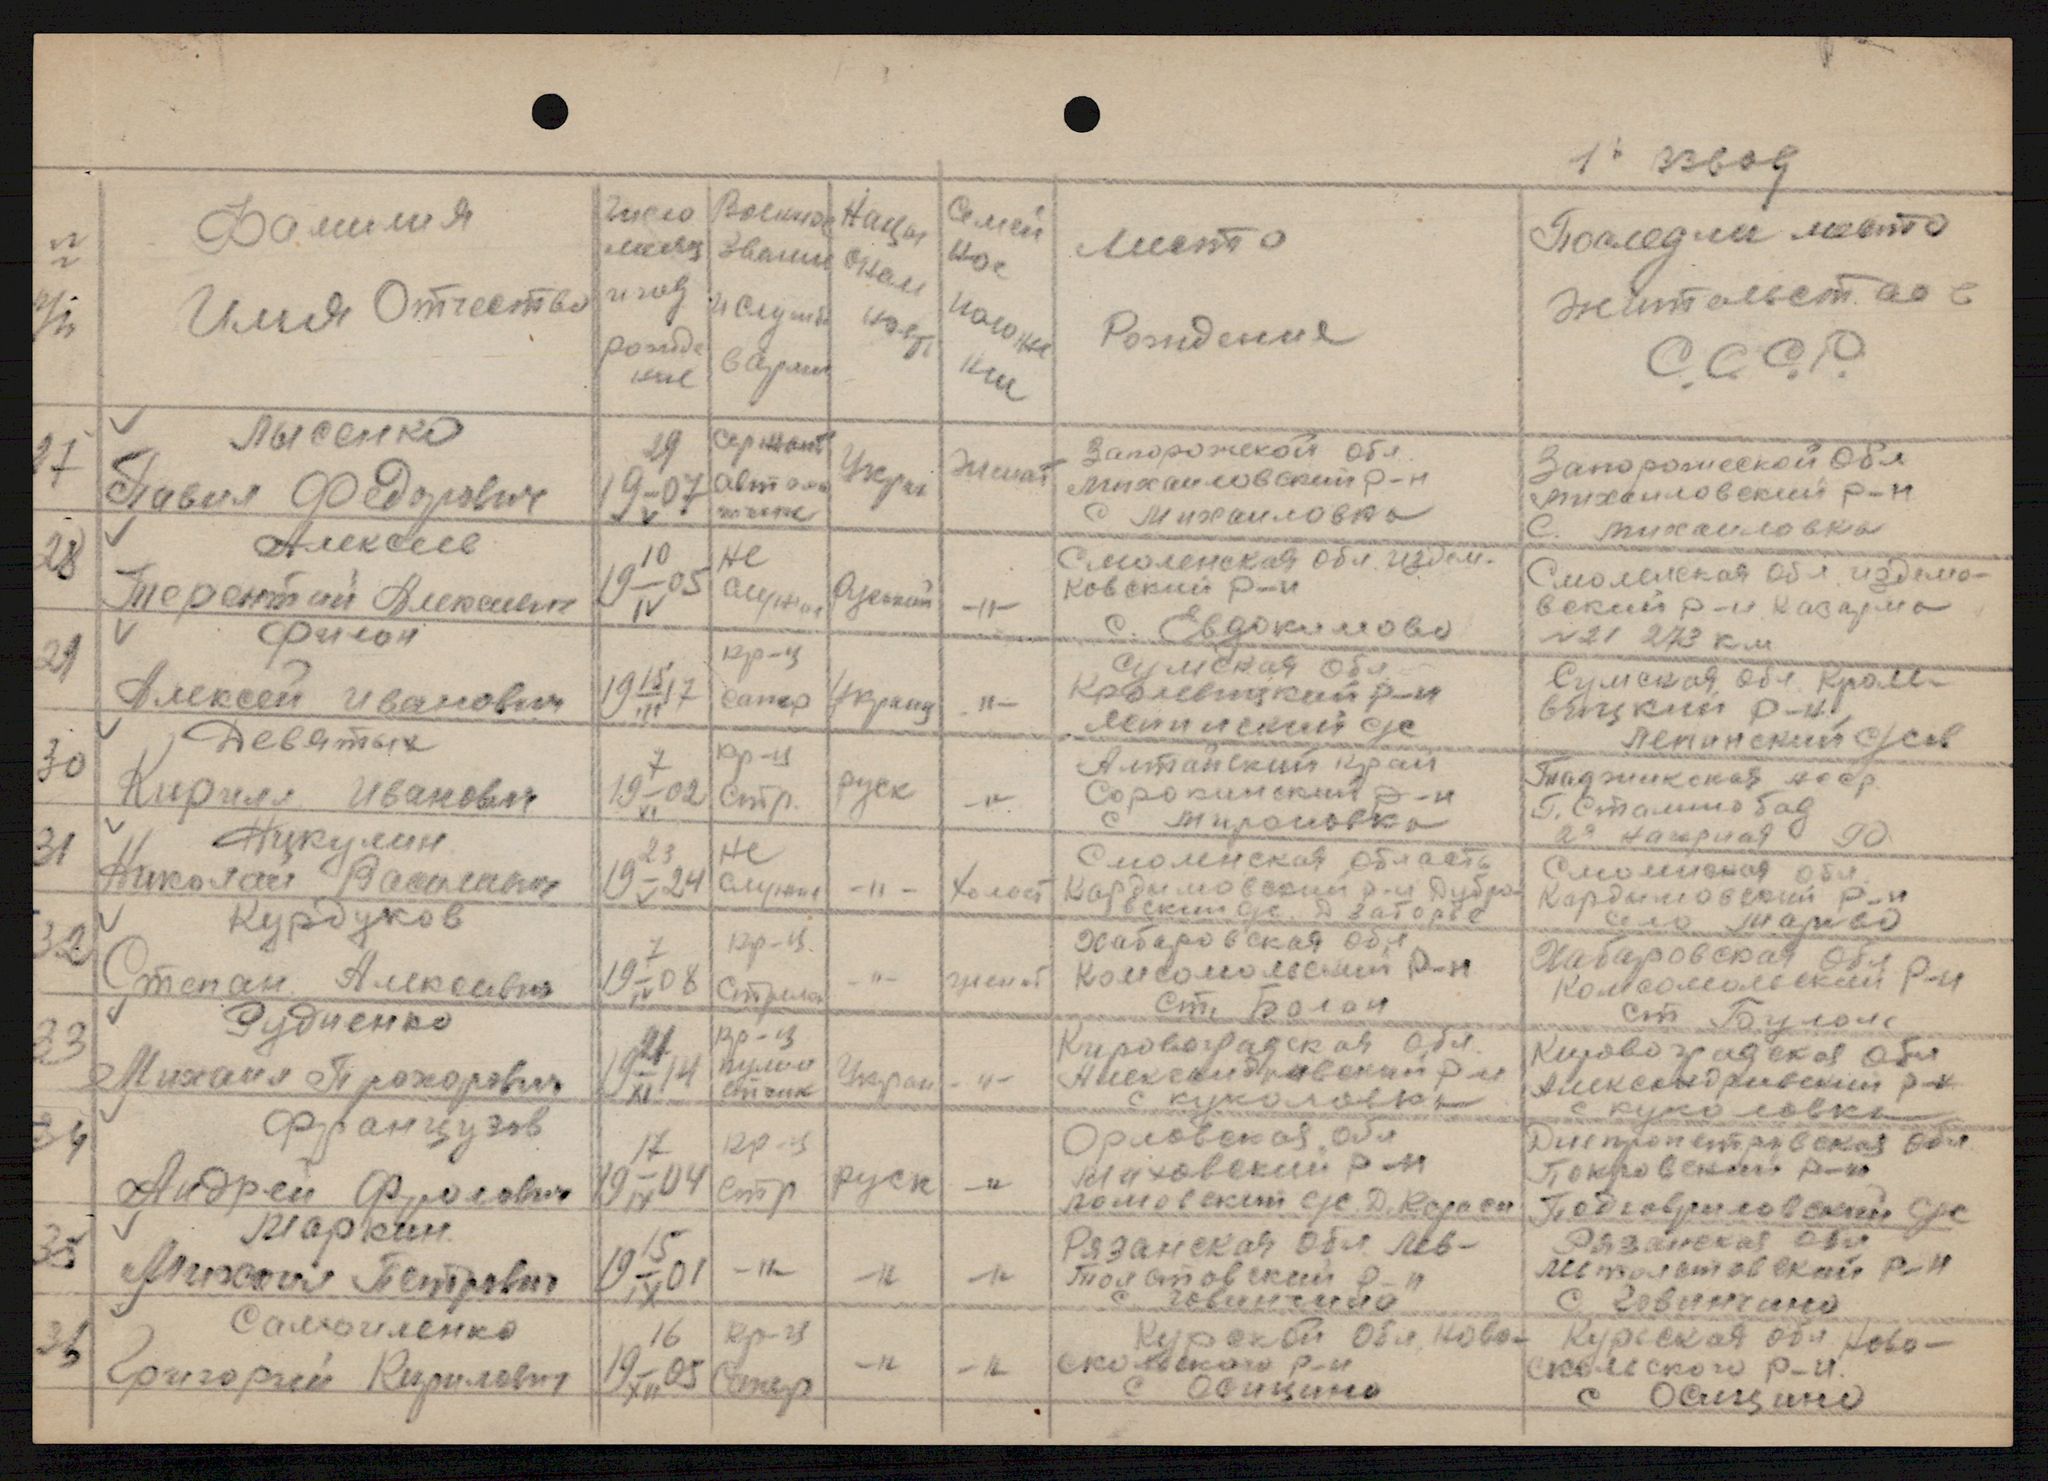 1й взвод
№№ п/п
Фамилия
Имя Отчество
Число
месяц
и год
рожде
ние
Военное
звание
и служба
в армии
Нацы
онал
ность
Семей
ное
положе
нии
Место
Рождения
Последнии место
Жительст во в
С.С.С.Р.
27
Лысенко
Павил Федорович
29
19–07
V
сержант
автома
тчик
Украи
Женат
Запорожской обл.
Михаиловский р-н
с Михаиловка
Запорожеской обл
Михаиловский р-н
С. Михаиловка
28
Алексеев
Терентий Алексеевич
10
19–05
IV
Не
служил
Руский
–"–
Смоленская обл. издеш-
ковский р-н
с. Евдокимово
Смоленская обл издешо-
вский р-н Казарма
№21 273 км
29
Филон
Алексей Иванович
15
19–17
III
кр-ц
сапер
Украиц
–"–
Сумская обл
Кролевицкий р-н
Ленинский с/с
Сумская обл. Кроле-
вицкий р-н
Ленинский с/сов
30
Девятых
Кирилл Иванович
7
19–02
VI
кр-ц
стр.
руск
–"–
Алтайский край
Сорокинский р-н
с Мироновка
Таджикская ясср
г. Сталинобад
2я Нагорная 90
31
Никулин
Николай Васильевич
23
19–24
V
Не
служил
–"–
холост
Смоленская область
Кардымовский р-н Дубро-
вский с/с. Д Загорье
Смоленская обл.
Кардымовский р-н
село Тарево
32
Курдуков
Степан Алексеевич
7
19–08
IV
кр-ц.
стрелок
–"–
женат
Хабаровская обл
Комсомольский р-н
ст. Болон
Хабаровская обл
Комсомольский р-н
ст Булон
33
Рудченко
Михаил Прохорович
21
19–14
XI
кр-ц
пулем
етчик
Украи
–"–
Кировоградская обл.
Александривский р-н
с куколовка
Кировоградская обл
Александривский р-н
с куколовка
34
Французов
Андрей Фролович
17
19–04
IX
кр-ц
стр
руск
–"–
Орловская обл
Миховский р-н
ломовский с/с. Д. Караси
Днепропетровская обл
Покровский р-н
Подгавриловский с/с
35
Маркин
Михаил Петрович
15
19–01
IX
–"–
–"–
–"–
Рязанская обл Лев-
Толстовский р-н
с Зовинчино
Рязанская обл
Левтолстовский р-н
с Зовинчино
36
Самоиленко
Григорий Кирилович
16
19–05
XII
кр-ц
Сапер
–"–
–"–
Курской обл, Ново-
скольского р-н
с Осицино
Курская обл Ново-
скольского р-н.
с Осицино